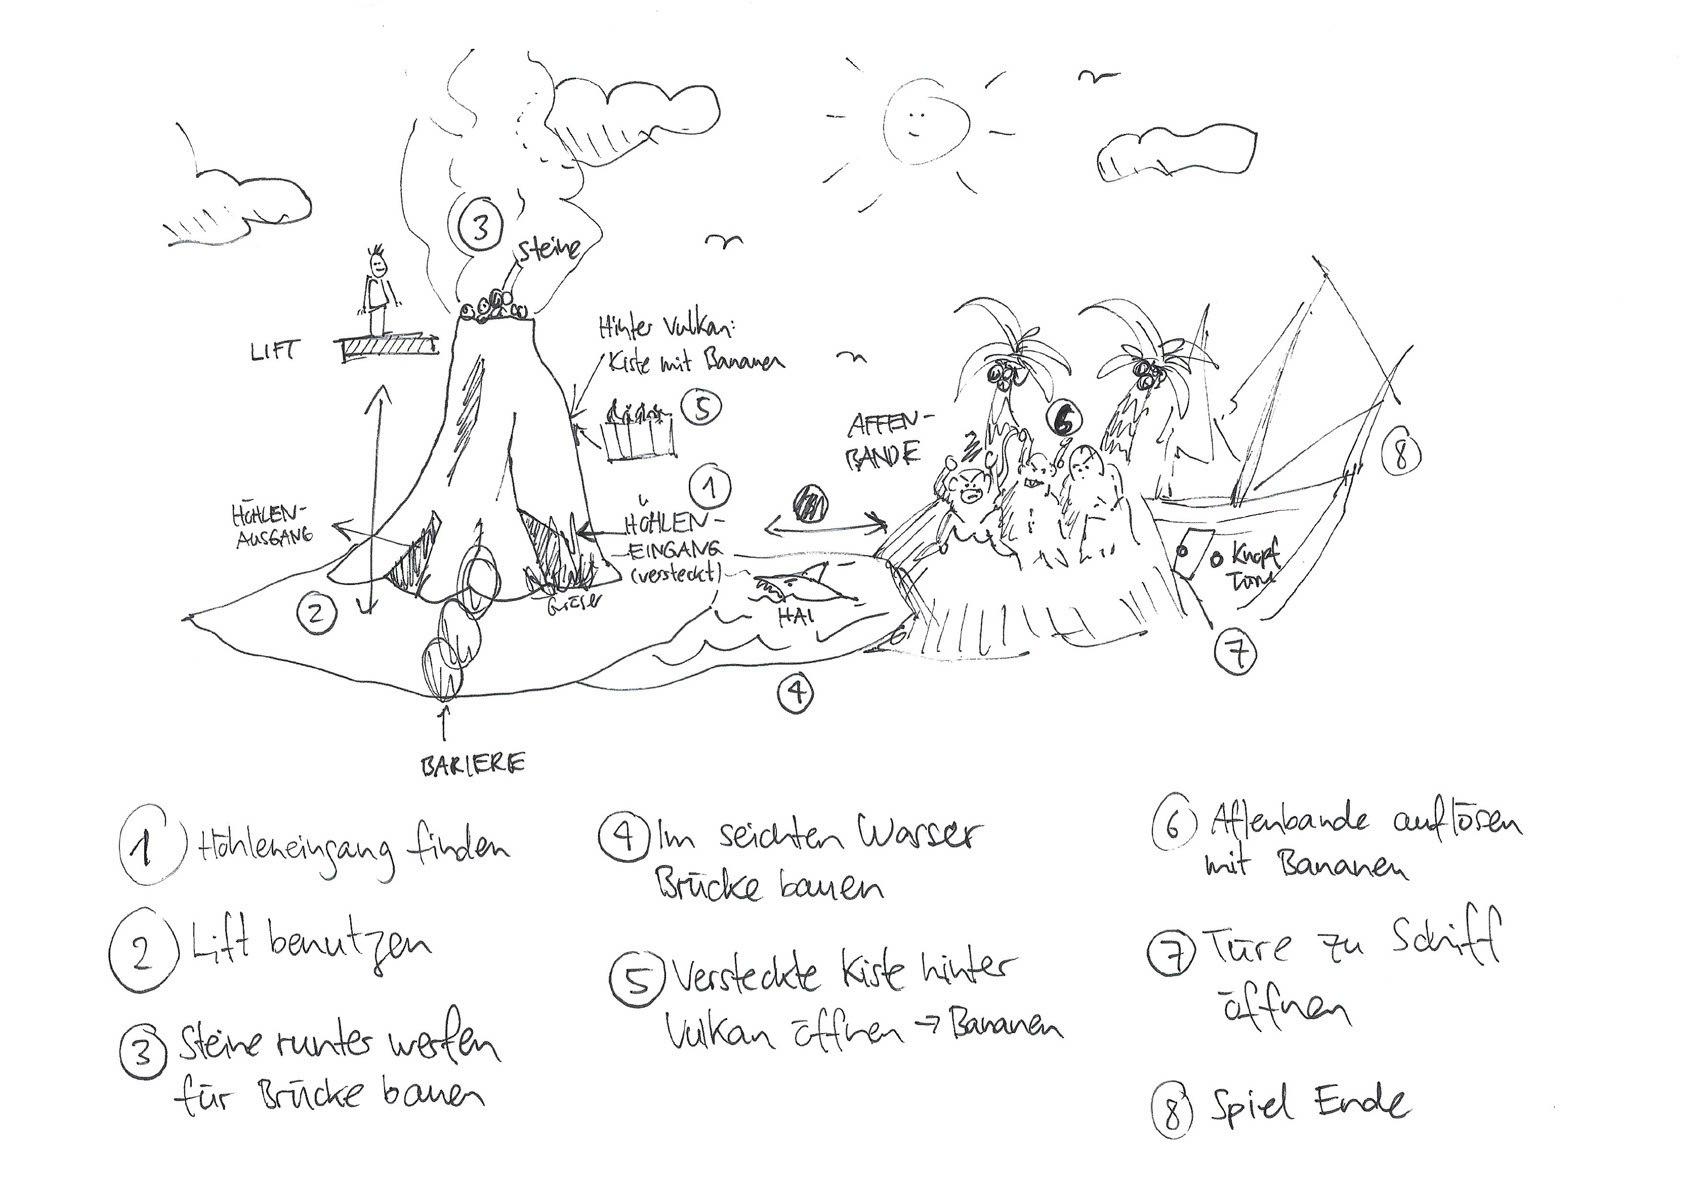 3
Steine
LIFT
Hinter Vulkan:
Kiste mit Bananen
5
AFFEN-
BANDE
6
8
1
HÖHLEN-
AUSGANG
HÖHLEN-
EINGANG
(versteckt)
Gräser
HAI
Knopf
Türe
2
4
7
BARIERE
1 Höhleneingang finden
2 Lift benutzen
3 Steine runter werfen
für Brücke bauen
4 Im seichten Wasser
Brücke bauen
5 Versteckte Kiste hinter
Vulkan öffnen → Bananen
6 Affenbande auflösen
mit Bananen
7 Türe zu Schiff
öffnen
8 Spiel Ende